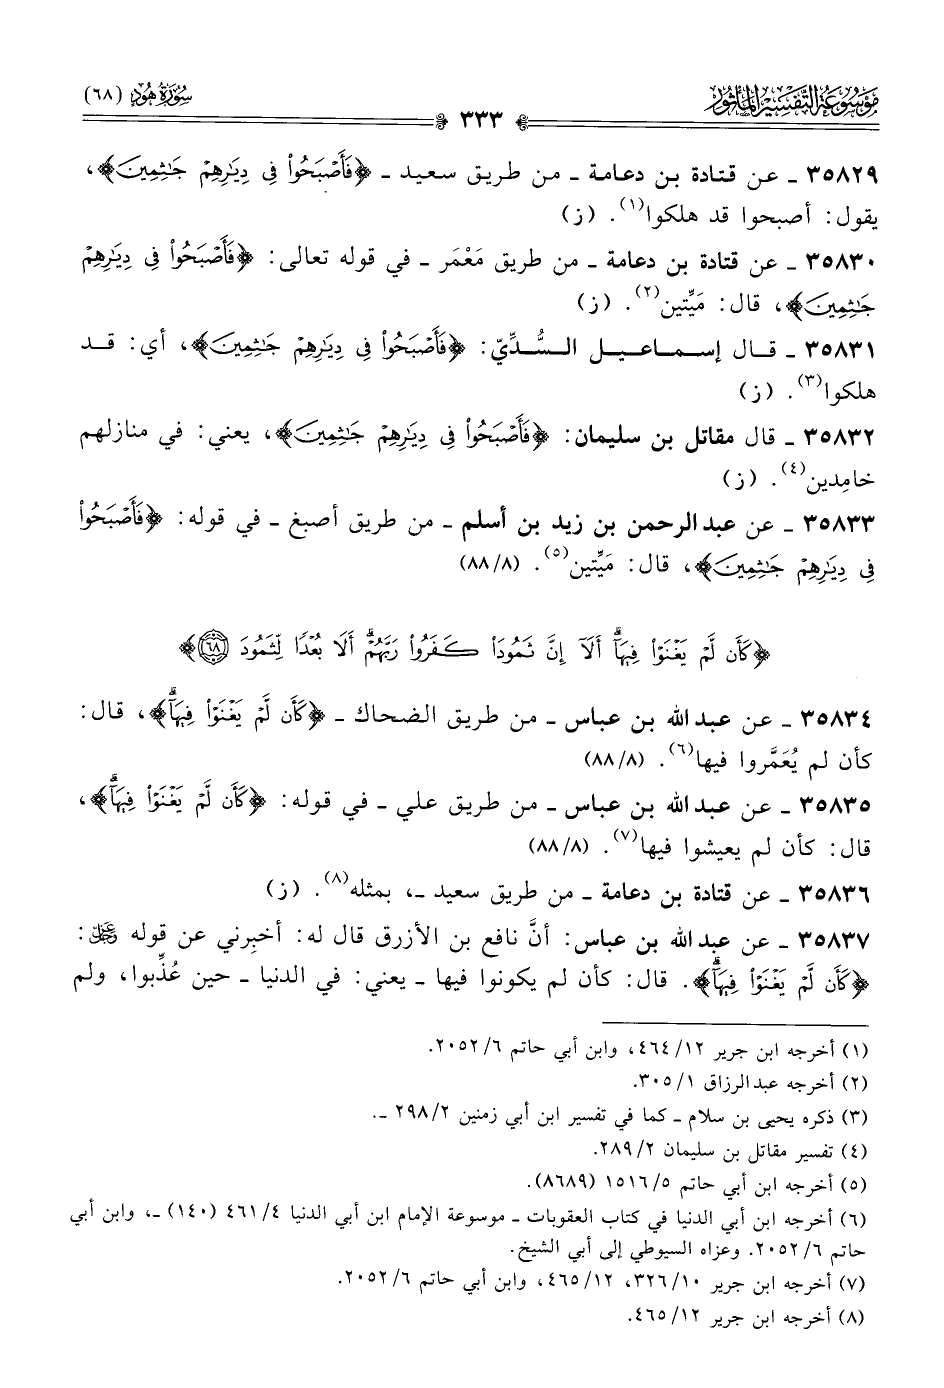 مَوْسُوعَة التَّفْسِير المَأْثُور
٣٣٣
سُورَةُ هُودٍ (٦٨)
٣٥٨٢٩ ـ عن قتادة بن دعامة ـ من طريق سعيد ـ ﴿فَأَصْبَحُواْ فِي دِيَٰرِهِمْ جَٰثِمِينَ﴾،
يقول: أصبحوا قد هلكوا(١). (ز)
٣٥٨٣٠ ـ عن قتادة بن دعامة ـ من طريق مَعْمَر ـ في قوله تعالى: ﴿فَأَصْبَحُواْ فِي دِيَٰرِهِمْ
جَٰثِمِينَ﴾، قال: مَيِّتين(٢). (ز)
٣٥٨٣١ ـ قال إسماعيل السُّدِّيّ: ﴿فَأَصْبَحُواْ فِي دِيَٰرِهِمْ جَٰثِمِينَ﴾، أي: قد
هلكوا(٣). (ز)
٣٥٨٣٢ ـ قال مقاتل بن سليمان: ﴿فَأَصْبَحُواْ فِي دِيَٰرِهِمْ جَٰثِمِينَ﴾، يعني: في منازلهم
خامِدين(٤). (ز)
٣٥٨٣٣ ـ عن عبد الرحمن بن زيد بن أسلم ـ من طريق أصبغ ـ في قوله: ﴿فَأَصْبَحُواْ
فِي دِيَٰرِهِمْ جَٰثِمِينَ﴾، قال: مَيِّتين(٥). (٨٨/٨)
﴿كَأَن لَّمْ يَغْنَوْاْ فِيهَآۗ أَلَآ إِنَّ ثَمُودَاْ كَفَرُواْ رَبَّهُمْۗ أَلَا بُعْدًا لِّثَمُودَ ٦٨﴾
٣٥٨٣٤ ـ عن عبد الله بن عباس ـ من طريق الضحاك ـ ﴿كَأَن لَّمْ يَغْنَوْاْ فِيهَآۗ﴾، قال:
كأن لم يُعَمَّروا فيها(٦). (٨٨/٨)
٣٥٨٣٥ ـ عن عبد الله بن عباس ـ من طريق علي ـ في قوله: ﴿كَأَن لَّمْ يَغْنَوْاْ فِيهَآۗ﴾،
قال: كأن لم يعيشوا فيها(٧). (٨٨/٨)
٣٥٨٣٦ ـ عن قتادة بن دعامة ـ من طريق سعيد ـ، بمثله(٨). (ز)
٣٥٨٣٧ ـ عن عبد الله بن عباس: أنَّ نافع بن الأزرق قال له: أخبِرني عن قوله ﷿:
﴿كَأَن لَّمْ يَغْنَوْاْ فِيهَآۗ﴾. قال: كأن لم يكونوا فيها ـ يعني: في الدنيا ـ حين عُذِّبوا، ولم
(١) أخرجه ابن جرير ١٢/ ٤٦٤، وابن أبي حاتم ٦/ ٢٠٥٢.
(٢) أخرجه عبدالرزاق ١/ ٣٠٥.
(٣) ذكره يحيى بن سلام ـ كما في تفسير ابن أبي زمنين ٢/ ٢٩٨ ـ.
(٤) تفسير مقاتل بن سليمان ٢/ ٢٨٩.
(٥) أخرجه ابن أبي حاتم ٥/ ١٥١٦ (٨٦٨٩).
(٦) أخرجه ابن أبي الدنيا في كتاب العقوبات ـ موسوعة الإمام ابن أبي الدنيا ٤/ ٤٦١ (١٤٠) ـ، وابن أبي
حاتم ٦/ ٢٠٥٢. وعزاه السيوطي إلى أبي الشيخ.
(٧) أخرجه ابن جرير ١٠/ ٣٢٦، ١٢/ ٤٦٥، وابن أبي حاتم ٦/ ٢٠٥٢.
(٨) أخرجه ابن جرير ١٢/ ٤٦٥.